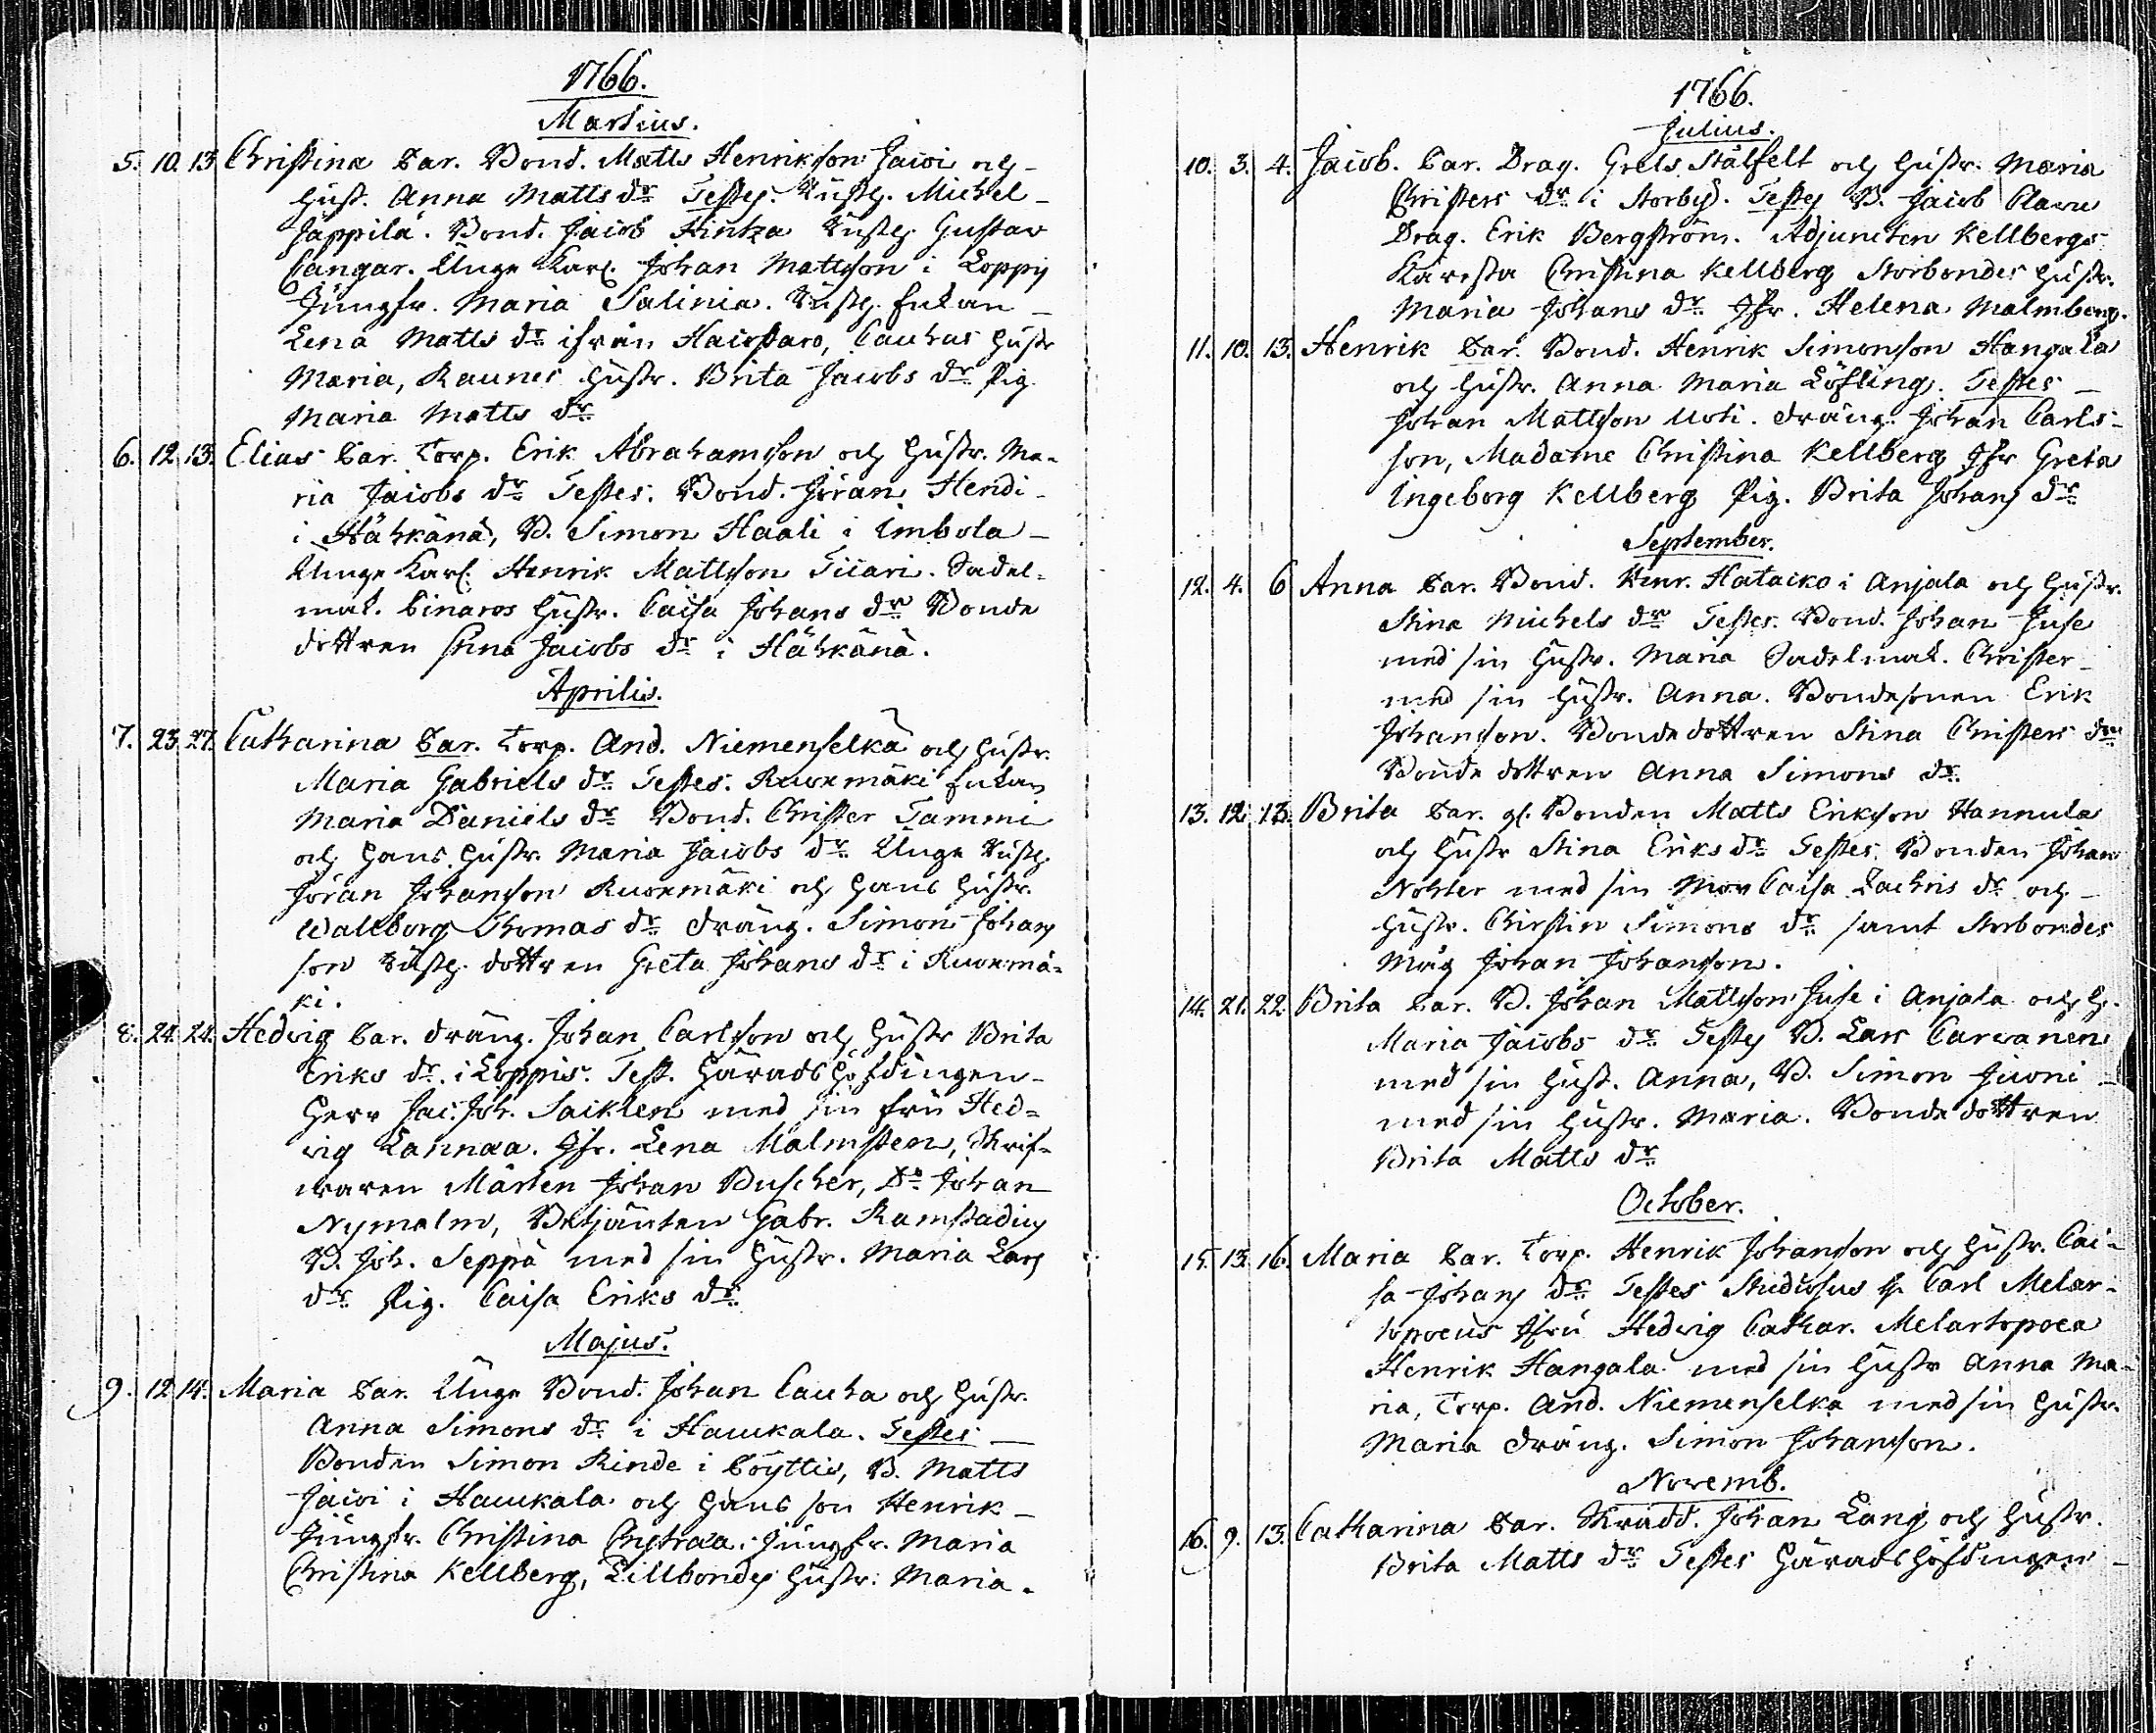 1766.
Martius.
5. 10. 13 Christina Par. Bond. Matts Henrikson Jacoi och
Hust. Anna Matts dr Testes. Rusth. Michel
Jäppilä. Bond. Jacob Hinka Rusth. Gustav
Cangar. Unge Karl. Johan Mattsson i Loppis
Jungfr. Maria Salinia. Rusth. Enkan
Lena Matts dr ifrån Haiostaro, Cauhas Hustr
Maria, Raunes Hustr. Brita Jacobs dr Pig.
Maria Matts dr
6. 12. 13. Elias Par. Torp. Erik Abrahamsson och Hustr. Ma-
ria Jacobs dr Testes. Bond. Jöran Hendi
i Hähkänä, B. Simon Haali i Umbola
Unge Karl. Henrik Mattsson Tiiari. Sadel-
mak. Cinaros Hustr. Caisa Johans dr Bonde
dottren Stina Jacobs dr i Hähkänä.
Aprilis.
7. 23. 27. Catharina Par. Torp. And. Niemenselkä och Hustr.
Maria Gabriels dr Testes. Ruokmäki Enkan
Maria Daniels dr Bond. Christer Tammi
och Hans Hustr. Maria Jacobs dr Unge Rusth.
Jöran Johansson Ruokmäki och Hans Hustr.
Wallborg Thomas dr Dräng. Simon Johans
son Rusth. dottren Greta Johans dr i Ruokmä-
ki.
8. 24. 24. Hedvig Par. Dräng. Johan Carlsson och Hustr Brita
Eriks dr. i Loppis. Test. Häradshöfdingen
Herr Jac. Joh. Saiklen med sin fru Hed-
vig Lannaa. Jfr. Lena Malmsten, Skrif-
waren Mårten Johan Buscher, Do Johan
Nymalm, Betjänten Gabr. Ramstadius
B. Joh. Seppä med sin Hustr. Maria Lars
dr Pig. Caisa Eriks dr
Majus.
9. 12. 14. Maria Par. Unge Bond. Johan Cauha och Hustr.
Anna Simons dr i Haukala. Testes
Bonden Simon Rinde i Cöyttis, B. Matts
Jacoi i Haukala och Hans son Henrik
Jungfr. Christina Jungfr. Maria
Christina Kellberg, Lillbondes Hustr. Maria.
1766.
Julius.
10. 3. 4. Jacob. Par. Drag. Grels Stålfelt och Hustr. Maria
Christers dr i Storby. Testes B. Jacob Clavu
Drag. Erik Bergström. Adjuncten Kellbergs
Käresta Christina Kellberg Storbondes Hustr.
Maria Johans dr Jfr. Helena Malmberg.
11. 10. 13. Henrik Par. Bond. Henrik Simonson Hangala
och Hustr. Anna Maria Löfling. Testes
Johan Mattsson Uoti. Dräng. Johan Carls-
son, Madame Christina Kellberg Jfr Greta
Ingeborg Kellberg Pig. Brita Johans dr
September.
12. 4. 6 Anna Par. Bond. Henr. Hatacko i Anjala och Hustr.
Stina Michels dr Testes. Bond. Johan Juse
med sin Hustr. Maria Sadelmak. Christer
med sin Hustr. Anna. Bondesonen Erik
Johansson. Bonde dottren Stina Christers dr
Bonde dottren Anna Simons dr
13. 12. 13. Brita Par. gl. Bonden Matts Erikson Hannula
och Hustr Stina Eriks dr Testes. Bonden Johan
Nohter med sin Mor Caisa Zachris dr och
Hustr. Christin Simons dr samt Storbondes
Måg Johan Johansson.
14. 21. 22. Brita Par. B. Johan Mattsson Juse i Anjala och H.
Maria Jacobs dr Testes B. Lars Carwanen
med sin Hust. Anna, B. Simon Juoni
med sin Hustr. Maria. Bonde dottren
Brita Matts dr
October.
15. 13. 16. Maria Par. Torp. Henrik Johansson och Hustr. Cai-
sa Johans dr Testes Studiosus H. Carl Melar-
topoeus Jfru Hedvig Cathar. Melartopoea
Henrik Hangala med sin Hustr Anna Ma-
ria, Torp. And. Niemenselka med sin Hustr.
Maria Dräng. Simon Johansson.
Novemb.
16. 9. 13. Catharina Par. Skradd. Johan Lang och Hustr.
Brita Matts dr Testes Häradshöfdingen